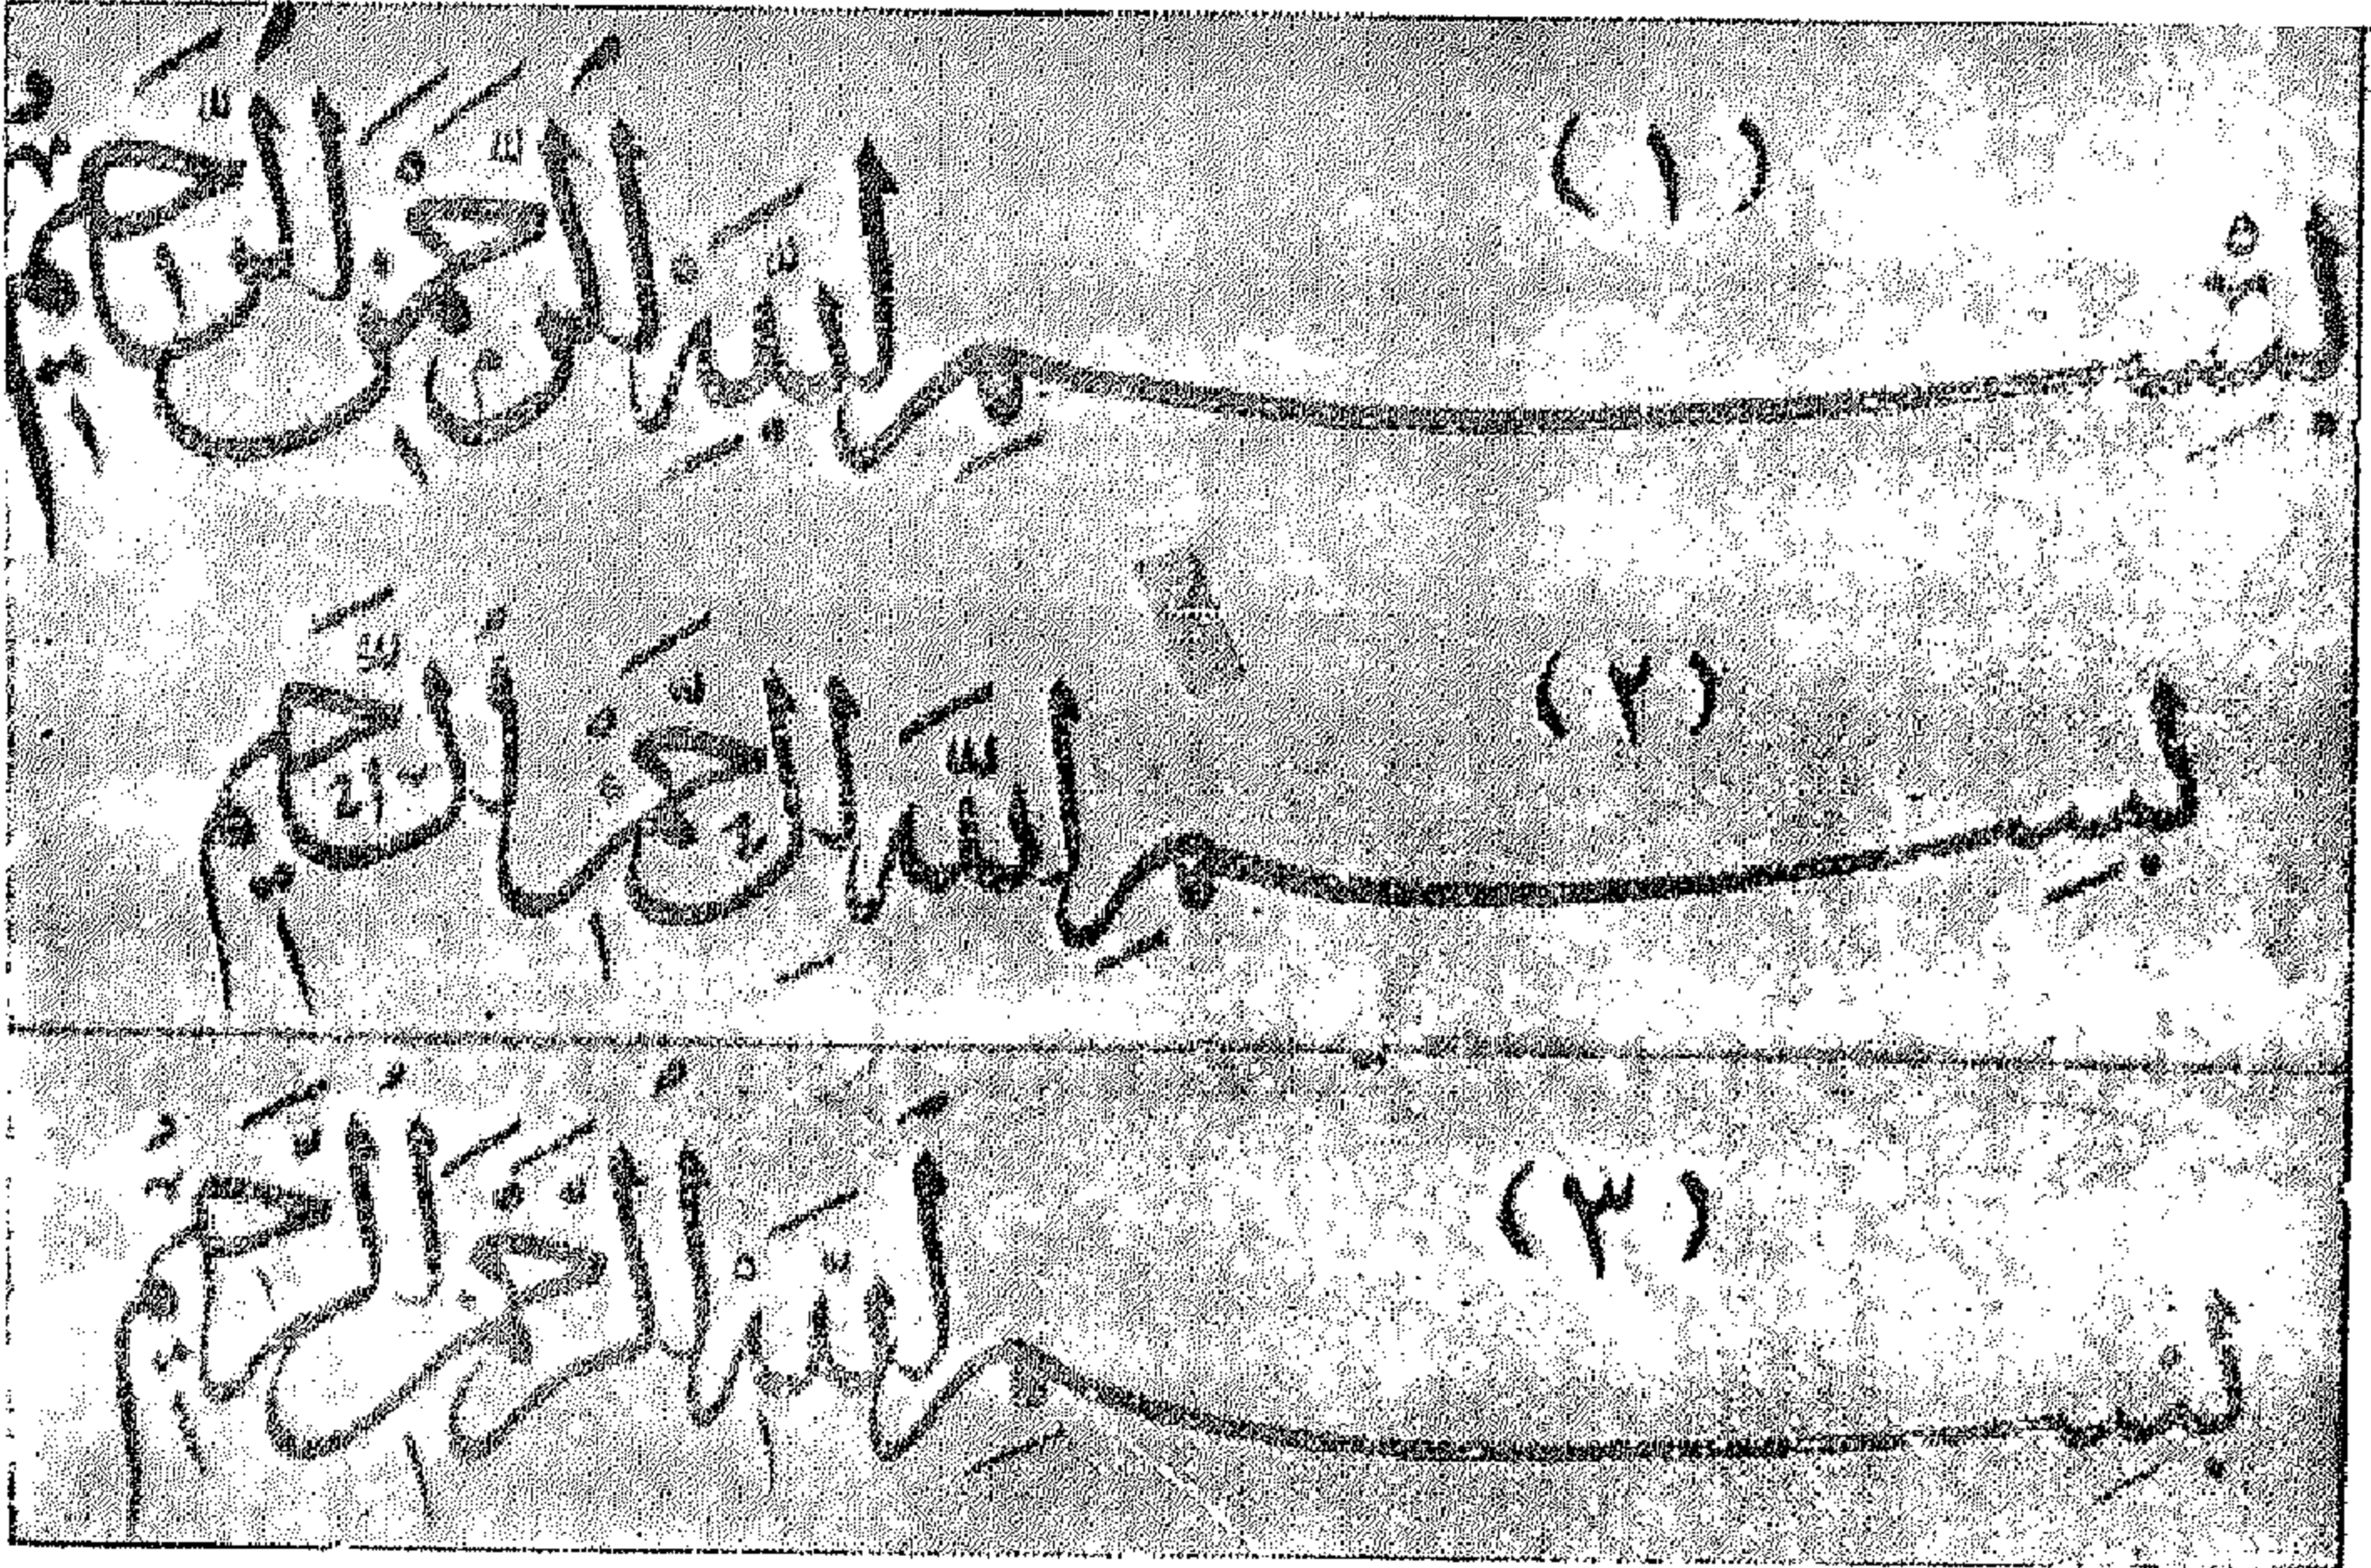 (١)
بِسْمِ اللَّهِ الرَّحْمَنِ الرَّحِيمِ
(٢)
بِسْمِ اللَّهِ الرَّحْمَنِ الرَّحِيمِ
(٣)
بِسْمِ اللَّهِ الرَّحْمَنِ الرَّحِيمِ